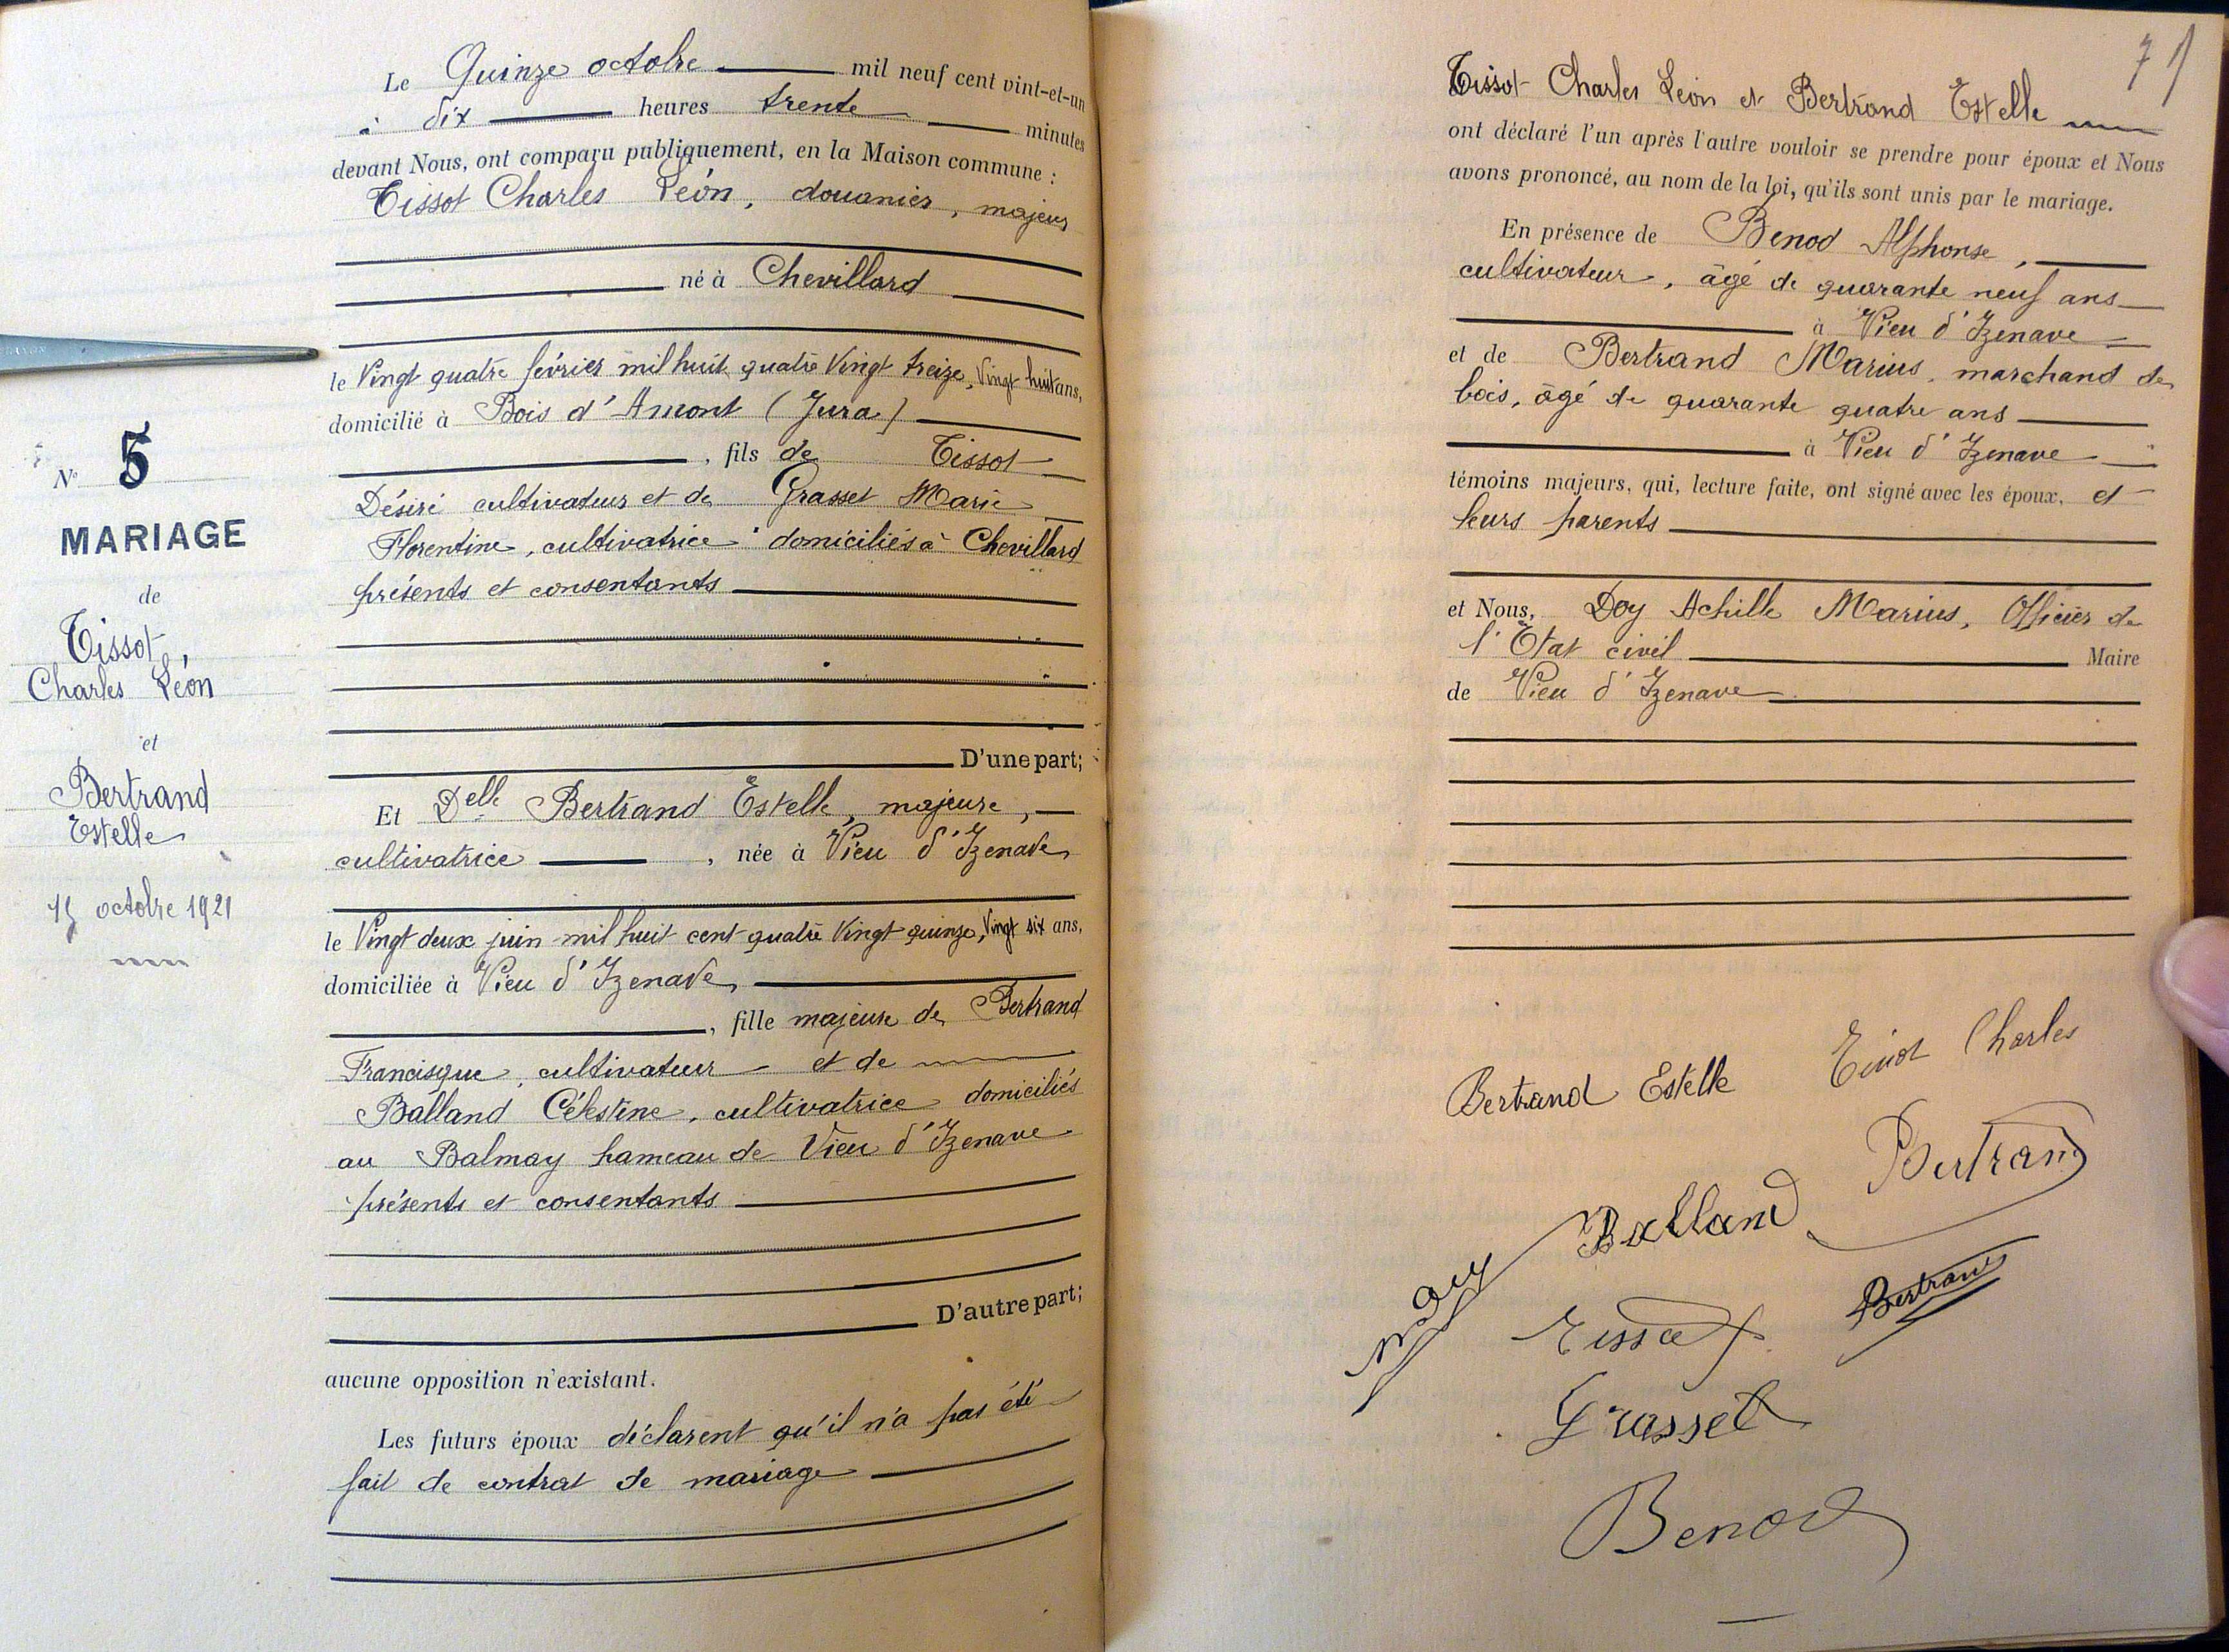 N° 5
MARIAGE
de
Tissot,
Charles Léon
et
Bertrand
Estelle
15 octobre 1921
Le Quinze octobre mil neuf cent vint-et-un
à dix heures trente minutes
devant Nous, ont comparu publiquement, en la Maison commune :
Tissot Charles Léon, douanier, majeur
né à Chevillard
le Vingt quatre février mil huit quatre Vingt treize, Vingt huit ans,
domicilié à Bois d'Amont (Jura)
, fils de Tissot
Désiré cultivateur et de Grasset Marie
Florentine, cultivatrice domiciliés à Chevillard
présents et consentants
D'une part;
Et Delle Bertrand Estelle, majeure,
cultivatrice , née à Vieu d'Izenave
le Vingt deux juin mil huit cent quatre Vingt quinze, Vingt six ans,
domiciliée à Vieu d'Izenave
, fille majeure de Bertrand
Francisque, cultivateur et de
Balland Célestine, cultivatrice domiciliés
au Balmay hameau de Vieu d'Izenave
présents et consentants
D'autre part;
aucune opposition n'existant.
Les futurs époux déclarent qu'il n'a pas été
fait de contrat de mariage
71
Tissot Charles Léon et Bertrand Estelle
ont déclaré l'un après l'autre vouloir se prendre pour époux et Nous
avons prononcé, au nom de la loi, qu'ils sont unis par le mariage.
En présence de Benod Alphonse,
cultivateur, âgé de quarante neuf ans
à Vieu d'Izenave
et de Bertrand Marius, marchand de
bois, âgé de quarante quatre ans
à Vieu d'Izenave
témoins majeurs, qui, lecture faite, ont signé avec les époux, et
leurs parents
et Nous, Doy Achille Marius, Officier de
l'Etat civil Maire
de Vieu d'Izenave
Bertrand Estelle Tissot Charles
Bertrand
Balland
Bertrand
Tissot
Grasset
Benod